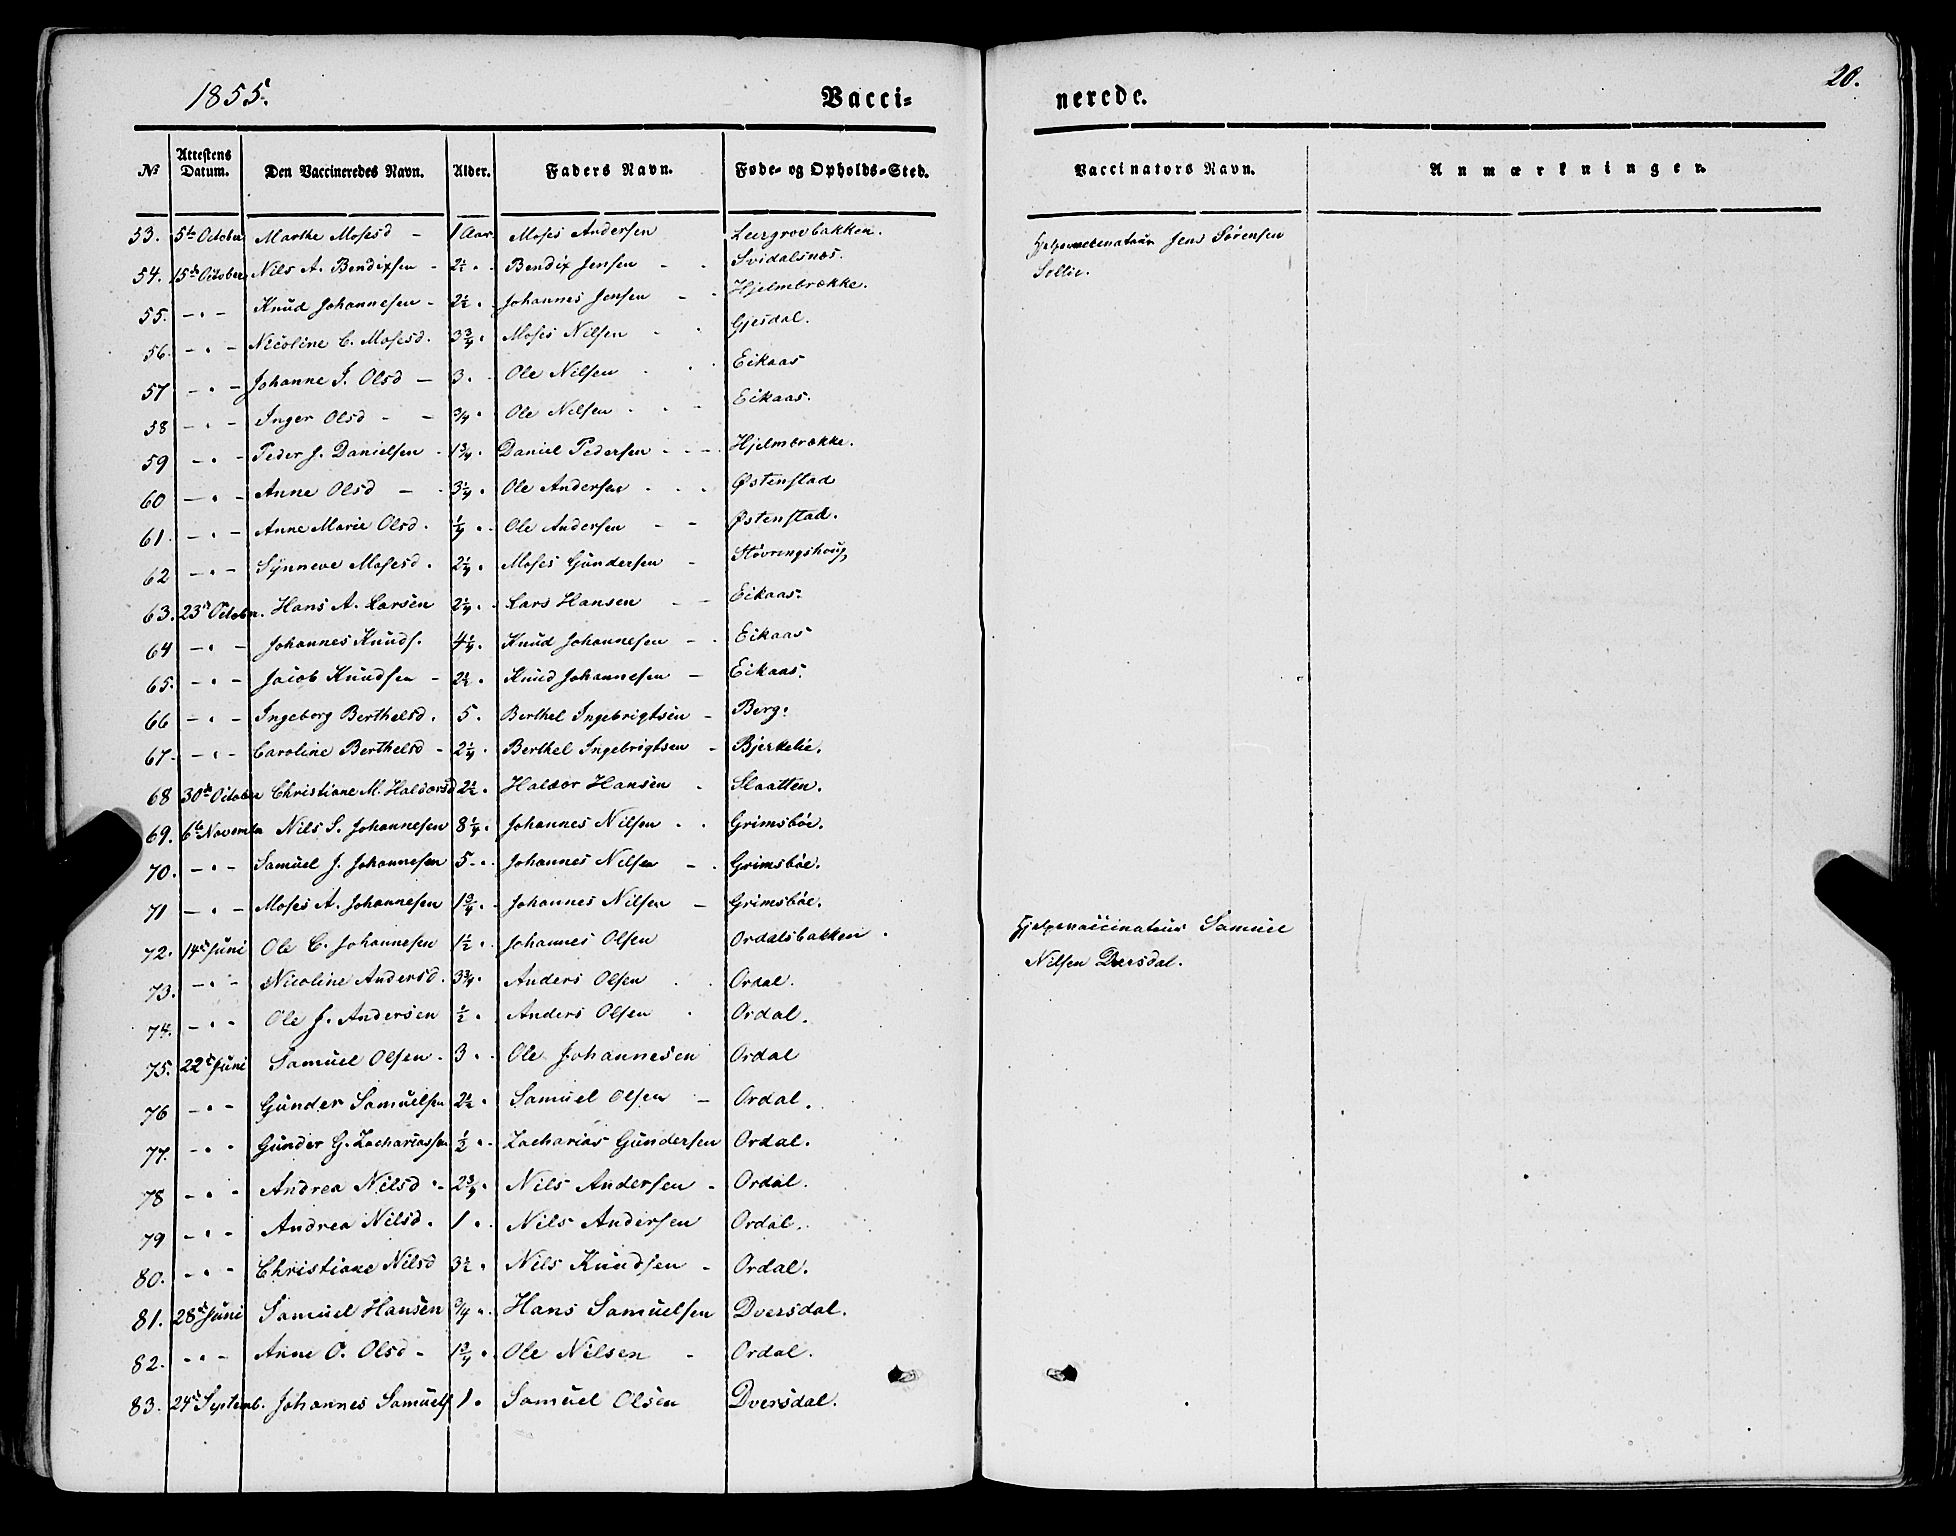 1855. Vacci= nerede. 20.
No Attestens Datum. Den Vaccineredes Navn. Alder. Faders Navn. Føde- og Opholds-Sted. Vaccinators Navn. Anmærkninger.
53. 5te October Marthe Mosesd - 1 Aar Moses Andersen Leergrovbakken. Hjelpevaccinateur Jens Sørensen
54. 15de October Nils A. Bendixsen - 2½ " Bendix Jensen - - Svidalsnæs. Sollie.
55. - " - Knud Johannesen - 2½ " Johannes Jensen - - Hjelmbrække.
56. - " - Nicoline C. Mosesd. 3¾ " Moses Nilsen - Gjesdal.
57 - " - Johanne S. Olsd - 3 " Ole Nilsen - Eikaas
58 - " - Inger Olsd - - ¾ " Ole Nilsen - - Eikaas.
59 - " - Peder J. Danielsen - 1¾ " Daniel Pedersen - - - Hjelmbrække.
60 - " - Anne Olsd - 3¼ " Ole Andersen - - - Østenstad
61. - " - Anne Marie Olsd. ¼ " Ole Andersen - - Østenstad.
62 - " - Synneve Mosesd. 2¼ " Moses Gundersen - Støvringshoug
63. 23de Octobr. Hans A. Larsen 2¼ " Lars Hansen - - Eikaas.
64 - " - Johannes Knuds. 4¼ " Knud Johannesen - - Eikaas
65. - " - Jacob Knudsen - 2½ " Knud Johannesen - Eikaas.
66 - " - Ingeborg Berthelsd. 5 " Berthel Ingebrigtsen - Berg.
67. - " - Caroline Berthelsd - 2¼ " Berthel Ingebrigtsen - Bjerkelie.
68 30de October Christiane M. Haldorsd 2½ " Haldor Hansen - Slaatten.
69. 6te Novembr Nils S. Johannesen 8¼ " Johannes Nilsen - - Grimsbøe.
70. - " - Samuel J. Johannesen 5 " Johannes Nilsen - - Grimsbøe.
71 - " - Moses A. Johannesen 1¾ " Johannes Nilsen - Grimsbøe.
72. 14de Juni Ole C. Johannesen 1½ " Johannes Olsen Ordalsbakken. Hjelpevaccinateur Samuel
73. - " - Nicoline Andersd. 3¾ " Anders Olsen - - Ordal. Nilsen Dversdal.
74. - " - Ole J. Andersen ½ " Anders Olsen - Ordal.
75. 22de Juni Samuel Olsen - 3 " Ole Johannesen Ordal
76 - " - Gunder Samuelsen 2½ " Samuel Olsen - Ordal.
77. - " - Gunder G. Zachariassen ½ " Zacharias Gundersen Ordal.
78 - " - Andrea Nilsd - 2¾ " Nils Andersen - Ordal.
79 - " - Andrea Nilsd. 1 " Nils Andersen Ordal.
80. - " - Christiane Nilsd 3½ " Nils Knudsen - Ordal.
81. 28de Juni Samuel Hansen ¾ " Hans Samuelsen Dversdal.
82. - " - Anne O. Olsd - 1¾ " Ole Nilsen - Ordal.
83. 24de Septemb. Johannes Samuels 1 " Samuel Olsen Dversdal.